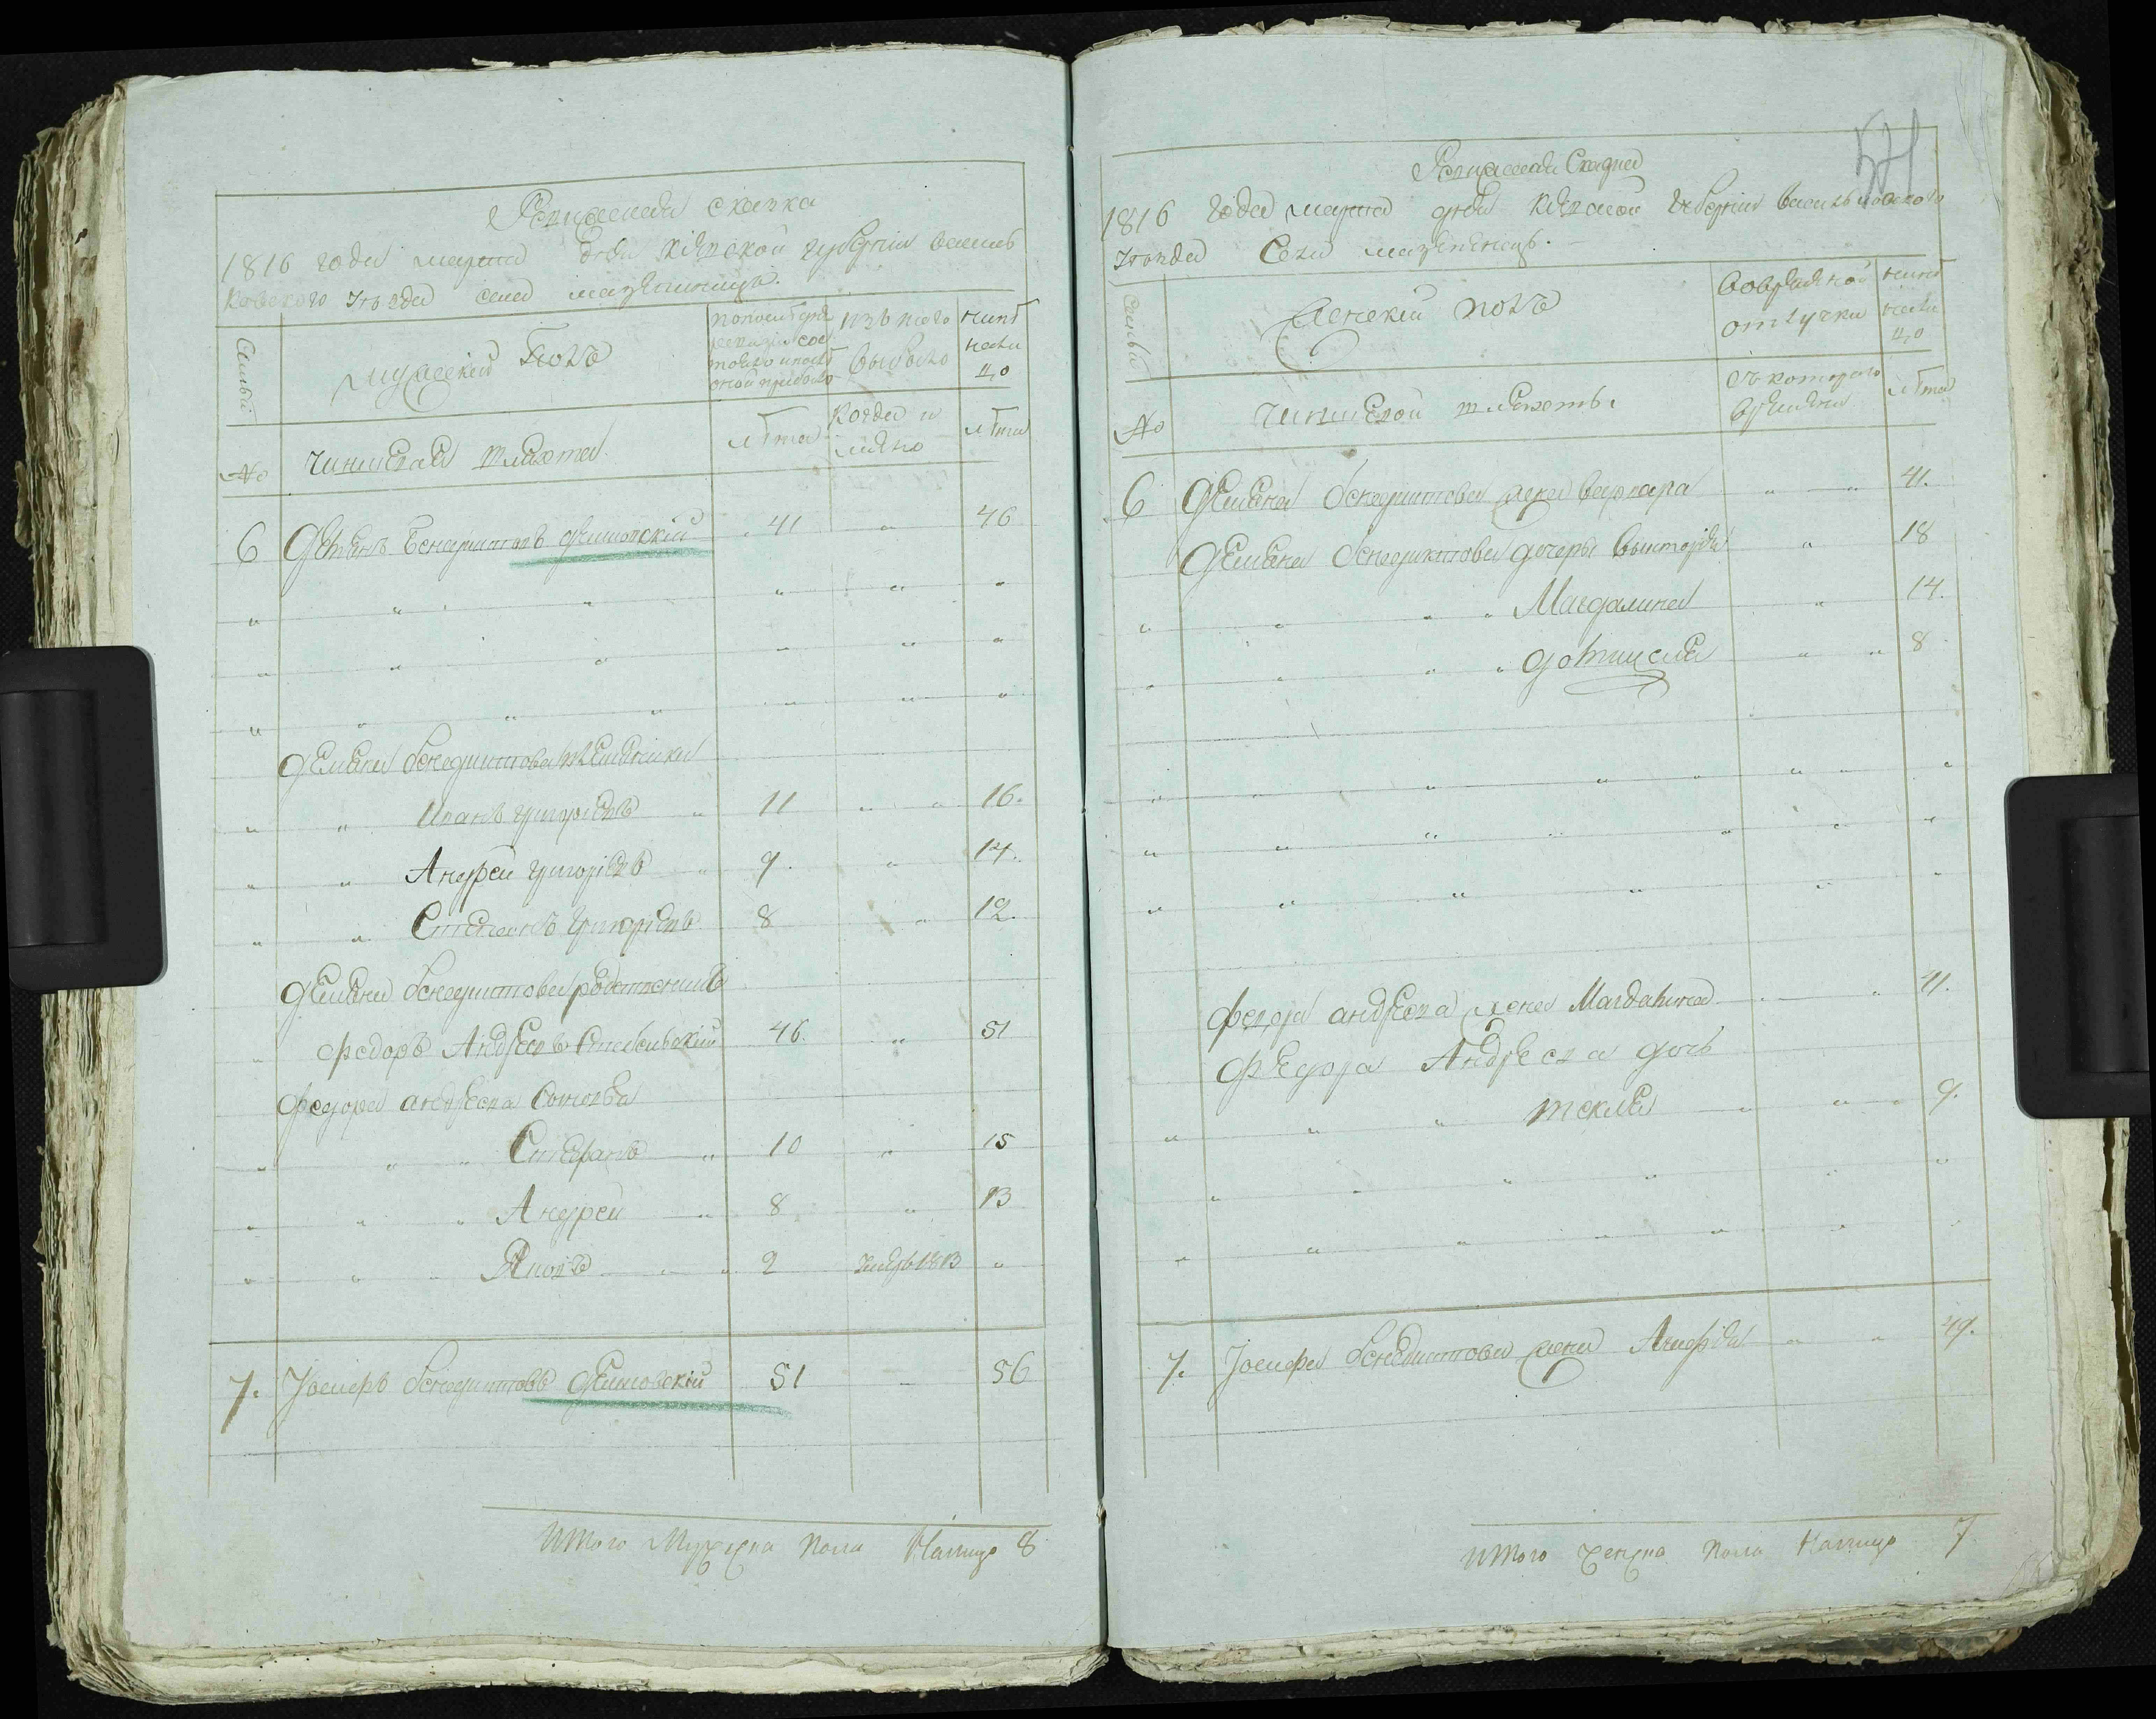 Ревизская сказка
1816 года марта дня Кіевской губерніи Василь
ковского уезда села Мазепинцъ.
Семьи
мужескій полъ
по последней ревизіи сос тояло и после оной прибыло
изъ того выбыло
ныне на ли цо
№
чиншевая шляхта.
лѣта
когда и
лѣта
6 Демянъ Бенедиктовъ Демковскій 41 " 46
Демяна Бенедиктова племянники
Иванъ Григоріевъ 11 " 16.
Андрей Григоріевъ 9. " 14.
Степанъ Григоріевъ 8 " 12.
Демяна Бенедиктова
Федоръ Андреевъ 46. " 51
Федора Андреева сыновья
Стефанъ 10 " 15
Андрей 8 " 13
Яковъ 2 умеръ 1813 "
7. Іосифъ Бенедиктовъ Демковскій 51 — 56
Итого мужеска пола налицо 8
54
Ревизская сказка
1816 года марта дня Кіевской губерніи Васильковского
уезда села Мазепинецъ.
Семьи
Женскій полъ
Во временной отлучке
ныне на ли цо
№
чиншевой шляхты
съ которого времяни
лѣта
6 Демяна Бенедиктова жена Варвара " " 41.
Демяна Бенедиктова дочеры Викторія " 18
" " " Магдалина " 14.
" " " " " 8
Федора Андреева жена Магдалина " 41.
Федора Андреева дочь
" " " Текля " " 9.
7. Іосифа Бенедиктова жена " " 49.
Итого женска пола налицо 7